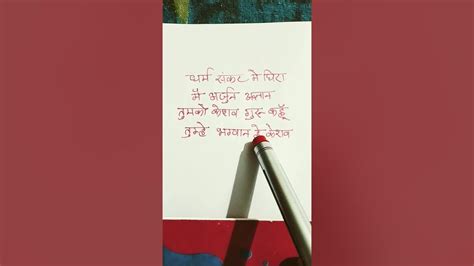 धर्म संकट मे घिरा
मैं अर्जुन अन्जान
तुमको केशव गुरु कहूँ
तुम्हे भगवान हे केशव